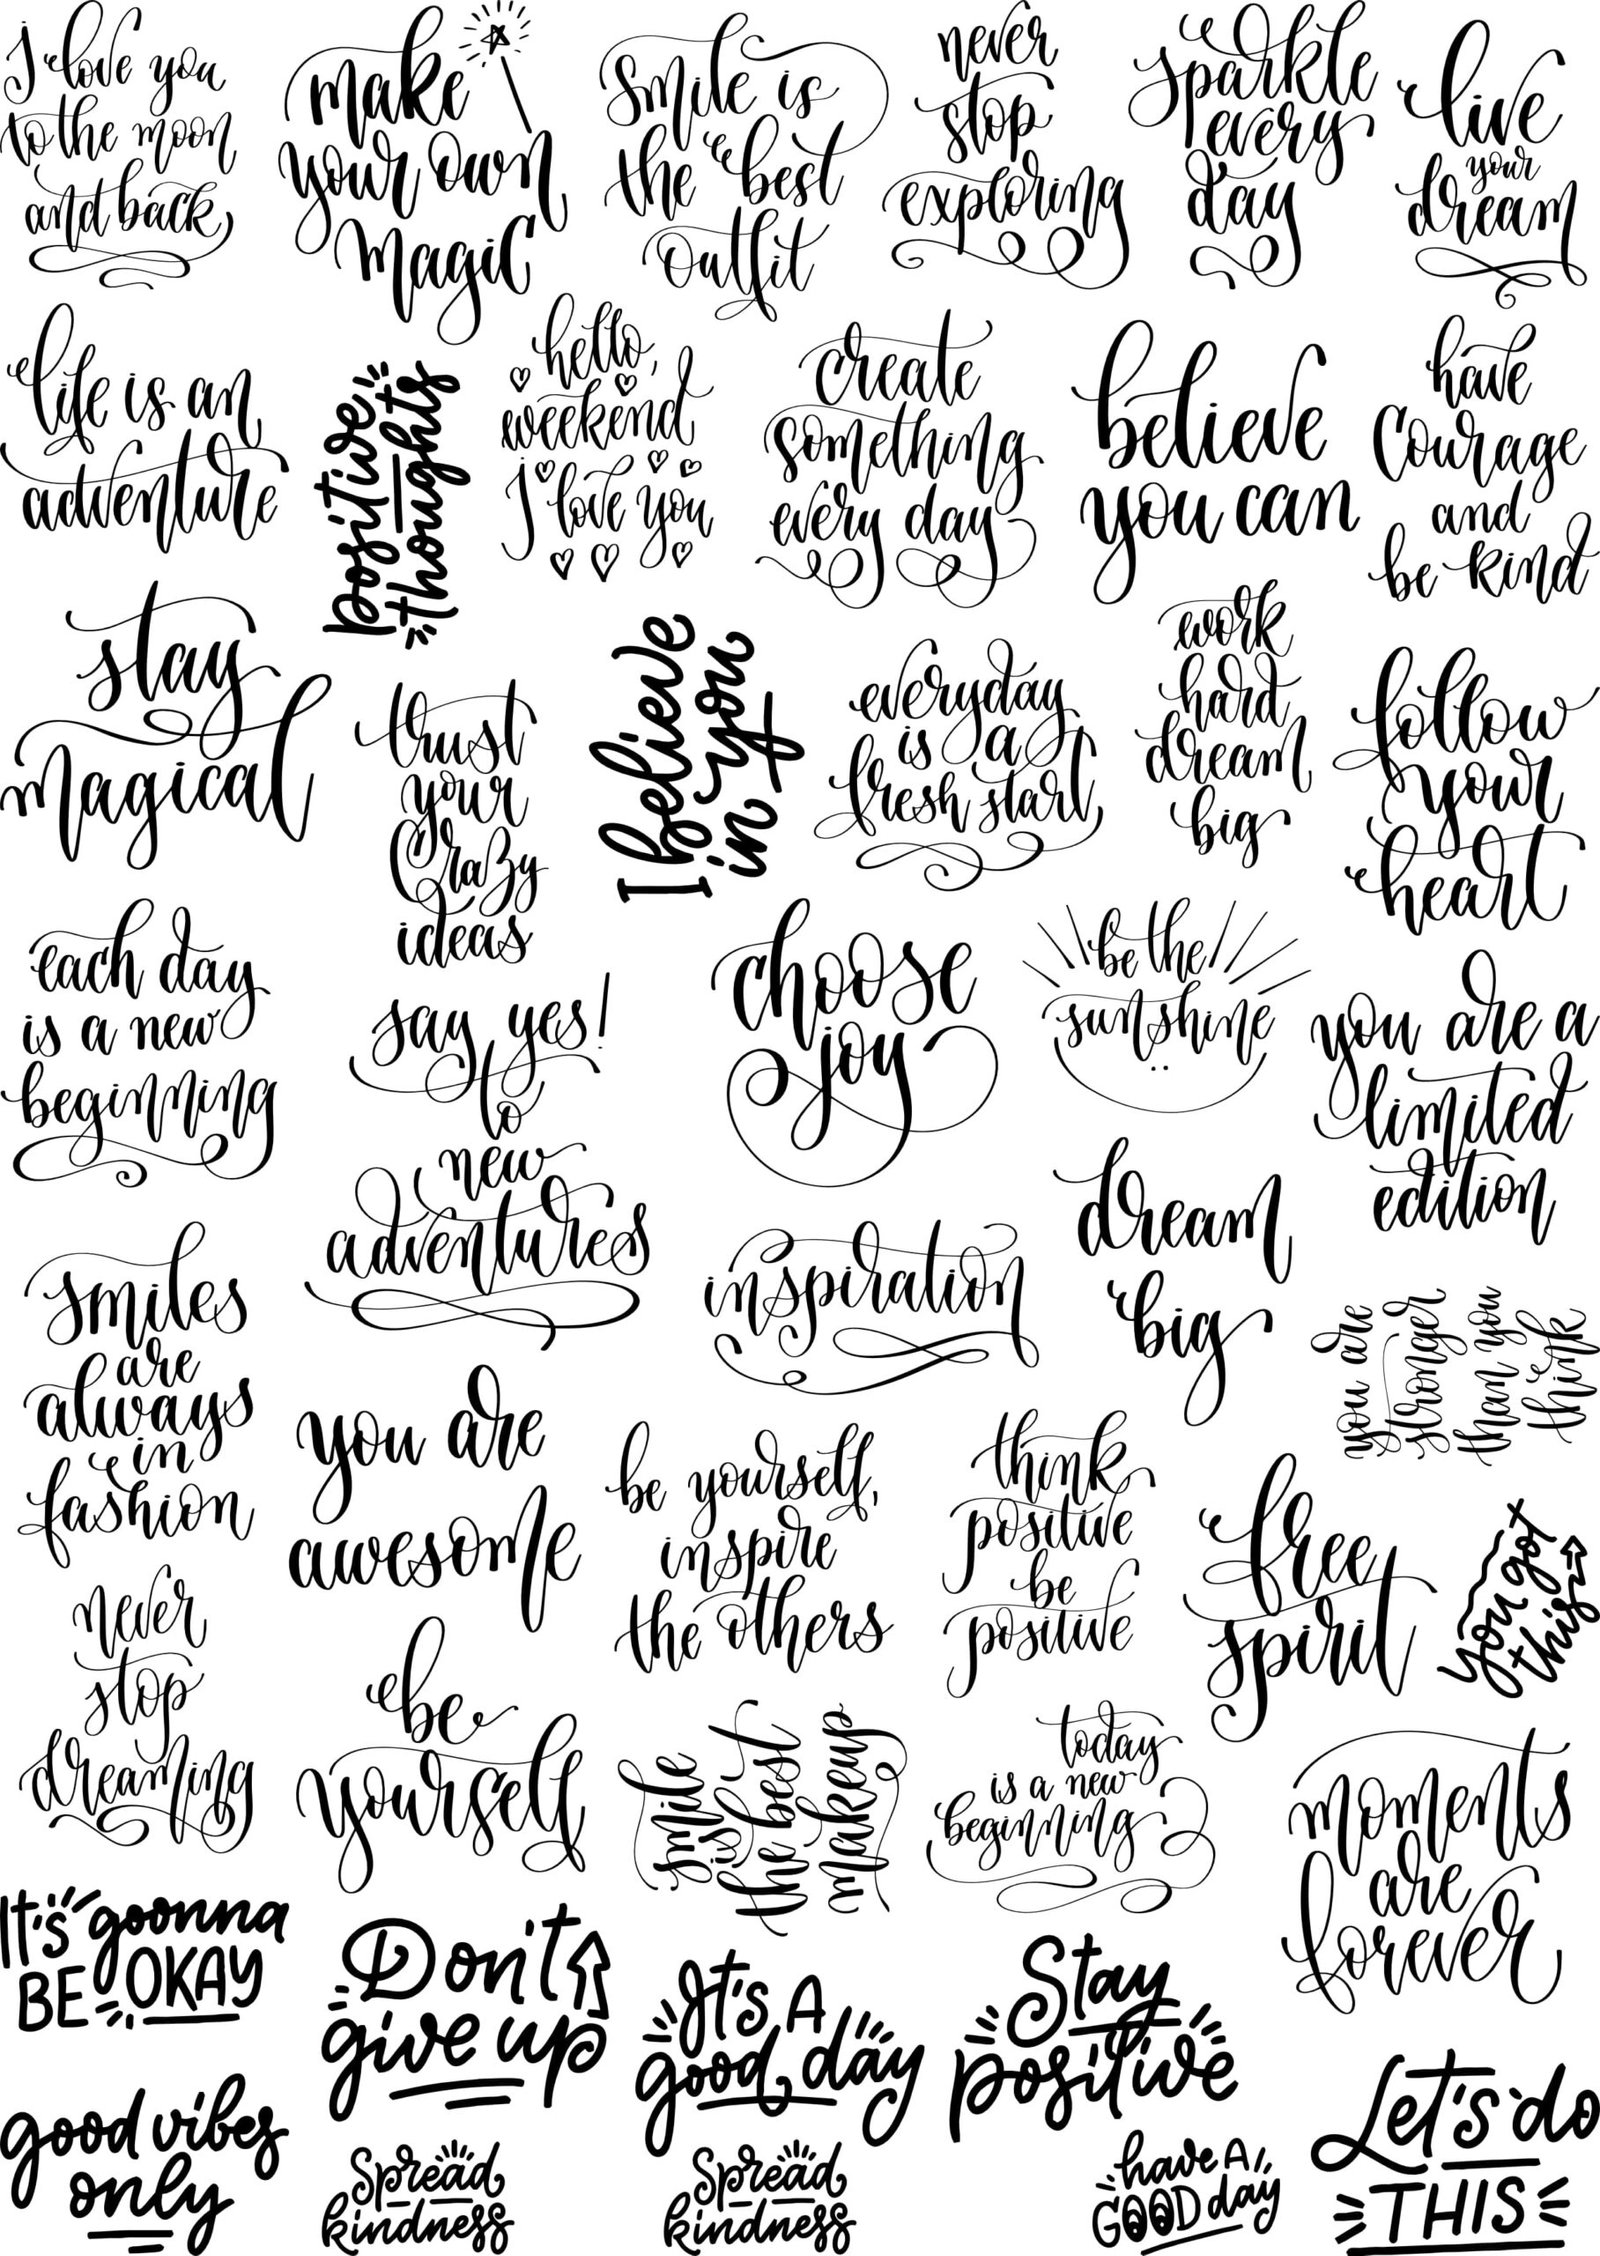 I love you
to the moon
and back
make
your own
magic
smile is
the best
outfit
never
stop
exploring
sparkle
every
day
live
your
dream
life is an
adventure
positive
thoughts
hello,
weekend
I love you
create
something
every day
believe
you can
have
courage
and
be kind
stay
magical
trust
your
crazy
ideas
I believe
in you
everyday
is a
fresh start
work
hard
dream
big
follow
your
heart
each day
is a new
beginning
say yes!
to
new
adventures
choose
joy
be the
sunshine
you are a
limited
edition
smiles
are
always
in
fashion
inspiration
dream
big
you are
stronger
than you
think
you are
awesome
be yourself,
inspire
the others
think
positive
be
positive
free
spirit
you got
this
never
stop
dreaming
be
yourself
smile
is
the best
makeup
today
is a new
beginning
moments
are
forever
It's goonna
BE OKAY
Don't
give up
It's A
good day
Stay
positive
good vibes
only
Spread
kindness
Spread
kindness
have A
GOOD day
Let's do
THIS